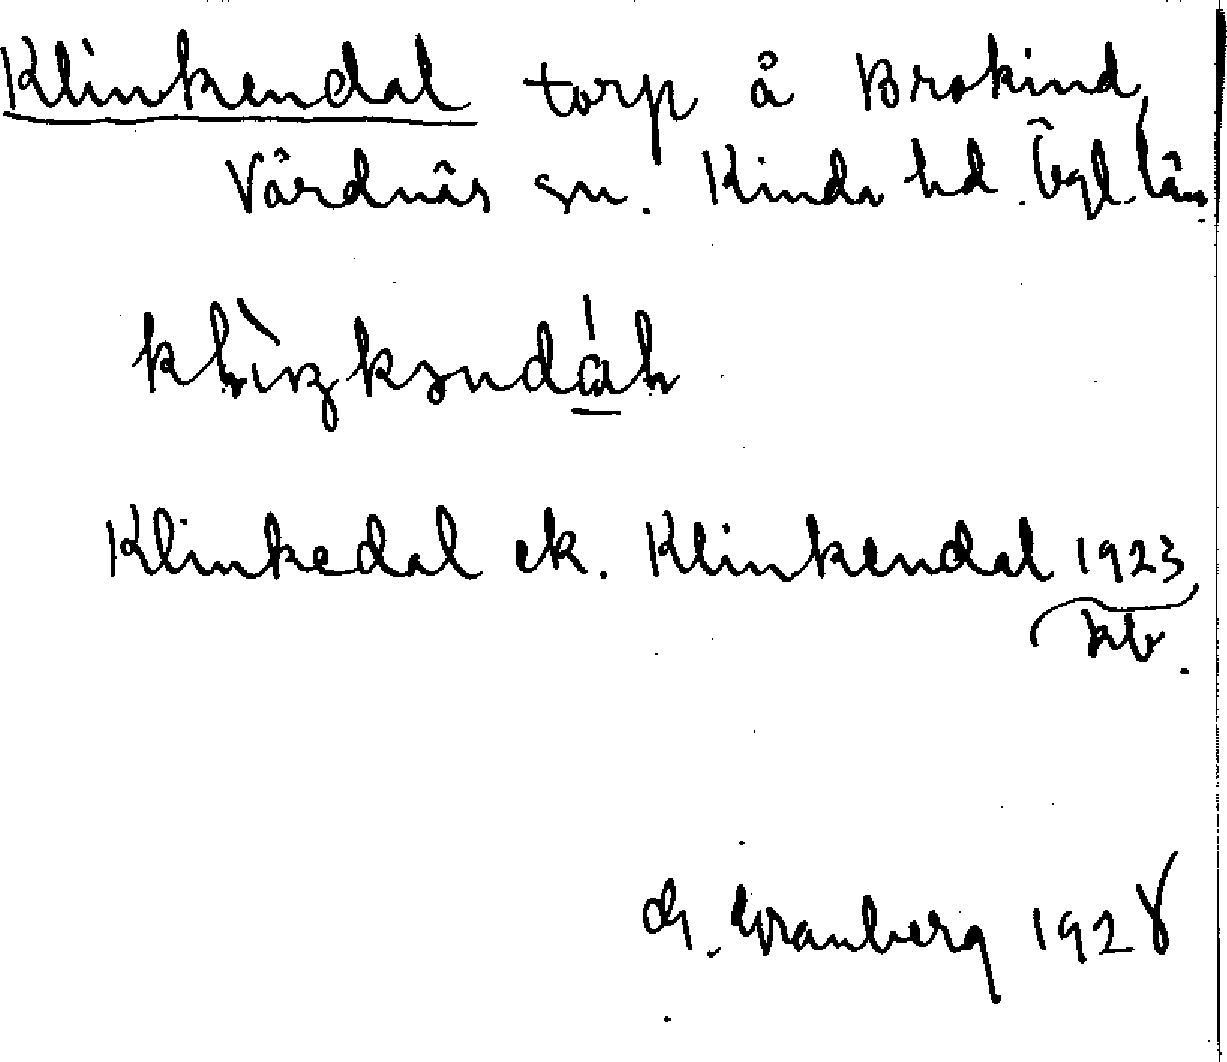 Klinkendal torp å Brokind,
Vårdnäs sn. Kinda hd. Ögl. län
Klinkedal ek. Klinkendal 1923
kb.
G. Granberg 1928